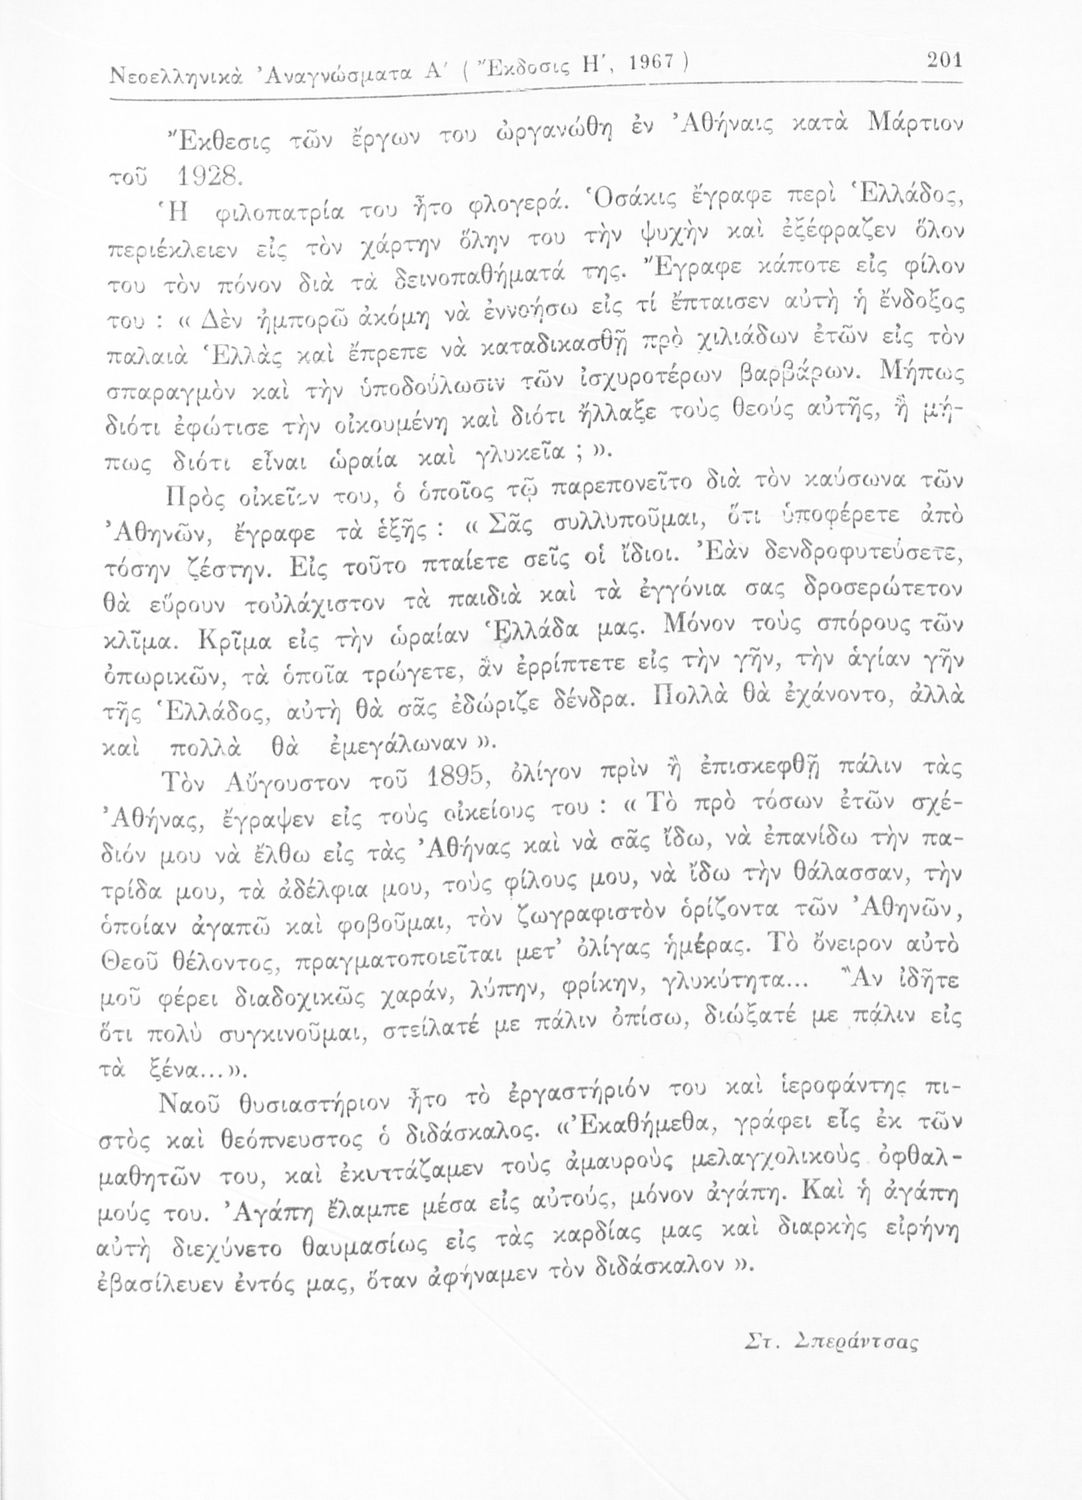 Νεοελληνικὰ Ἀναγνώσματα Α' ( Ἔκδοσις Η', 1967 ) 201
Ἔκθεσις τῶν ἔργων του ὠργανώθη ἐν Ἀθήναις κατὰ Μάρτιον
τοῦ 1928.
Ἡ φιλοπατρία του ἦτο φλογερά. Ὁσάκις ἔγραφε περὶ Ἑλλάδος,
περιέκλειεν εἰς τὸν χάρτην ὅλην του τὴν ψυχὴν καὶ ἐξέφραζεν ὅλον
του τὸν πόνον διὰ τὰ δεινοπαθήματά της. Ἔγραφε κάποτε εἰς φίλον
του : « Δὲν ἠμπορῶ ἀκόμη νὰ ἐννοήσω εἰς τί ἔπταισεν αὐτὴ ἡ ἔνδοξος
παλαιὰ Ἑλλὰς καὶ ἔπρεπε νὰ καταδικασθῇ πρὸ χιλιάδων ἐτῶν εἰς τὸν
σπαραγμὸν καὶ τὴν ὑποδούλωσιν τῶν ἰσχυροτέρων βαρβάρων. Μήπως
διότι ἐφώτισε τὴν οἰκουμένη καὶ διότι ἤλλαξε τοὺς θεούς αὐτῆς, ἢ μή-
πως διότι εἶναι ὡραία καὶ γλυκεῖα ; ».
Πρὸς οἰκεῖον του, ὁ ὁποῖος τῷ παρεπονεῖτο διὰ τὸν καύσωνα τῶν
Ἀθηνῶν, ἔγραφε τὰ ἑξῆς : « Σᾶς συλλυποῦμαι, ὅτι ὑποφέρετε ἀπὸ
τόσην ζέστην. Εἰς τοῦτο πταίετε σεῖς οἱ ἴδιοι. Ἐὰν δενδροφυτεύσετε,
θὰ εὕρουν τοὐλάχιστον τὰ παιδιὰ καὶ τὰ ἐγγόνια σας δροσερώτετον
κλῖμα. Κρῖμα εἰς τὴν ὡραίαν Ἑλλάδα μας. Μόνον τοὺς σπόρους τῶν
ὀπωρικῶν, τὰ ὁποῖα τρώγετε, ἂν ἐρρίπτετε εἰς τὴν γῆν, τὴν ἁγίαν γῆν
τῆς Ἑλλάδος, αὐτὴ θὰ σᾶς ἐδώριζε δένδρα. Πολλὰ θὰ ἐχάνοντο, ἀλλὰ
καὶ πολλὰ θὰ ἐμεγάλωναν ».
Τὸν Αὔγουστον τοῦ 1895, ὀλίγον πρὶν ἢ ἐπισκεφθῇ πάλιν τὰς
Ἀθήνας, ἔγραψεν εἰς τοὺς οἰκείους του : « Τὸ πρὸ τόσων ἐτῶν σχέ-
διόν μου νὰ ἔλθω εἰς τὰς Ἀθήνας καὶ νὰ σᾶς ἴδω, νὰ ἐπανίδω τὴν πα-
τρίδα μου, τὰ ἀδέλφια μου, τοὺς φίλους μου, νὰ ἴδω τὴν θάλασσαν, τὴν
ὁποίαν ἀγαπῶ καὶ φοβοῦμαι, τὸν ζωγραφιστὸν ὁρίζοντα τῶν Ἀθηνῶν,
Θεοῦ θέλοντος, πραγματοποιεῖται μετ' ὀλίγας ἡμέρας. Τὸ ὄνειρον αὐτὸ
μοῦ φέρει διαδοχικῶς χαράν, λύπην, φρίκην, γλυκύτητα... Ἂν ἰδῆτε
ὅτι πολὺ συγκινοῦμαι, στείλατέ με πάλιν ὀπίσω, διώξατέ με πάλιν εἰς
τὰ ξένα...».
Ναοῦ θυσιαστήριον ἦτο τὸ ἐργαστήριόν του καὶ ἱεροφάντης πι-
στὸς καὶ θεόπνευστος ὁ διδάσκαλος. «Ἐκαθήμεθα, γράφει εἷς ἐκ τῶν
μαθητῶν του, καὶ ἐκυττάζαμεν τοὺς ἀμαυροὺς μελαγχολικοὺς ὀφθαλ-
μούς του. Ἀγάπη ἔλαμπε μέσα εἰς αὐτούς, μόνον ἀγάπη. Καὶ ἡ ἀγάπη
αὐτὴ διεχύνετο θαυμασίως εἰς τὰς καρδίας μας καὶ διαρκὴς εἰρήνη
ἐβασίλευεν ἐντός μας, ὅταν ἀφήναμεν τὸν διδάσκαλον ».
Στ. Σπεράντσας